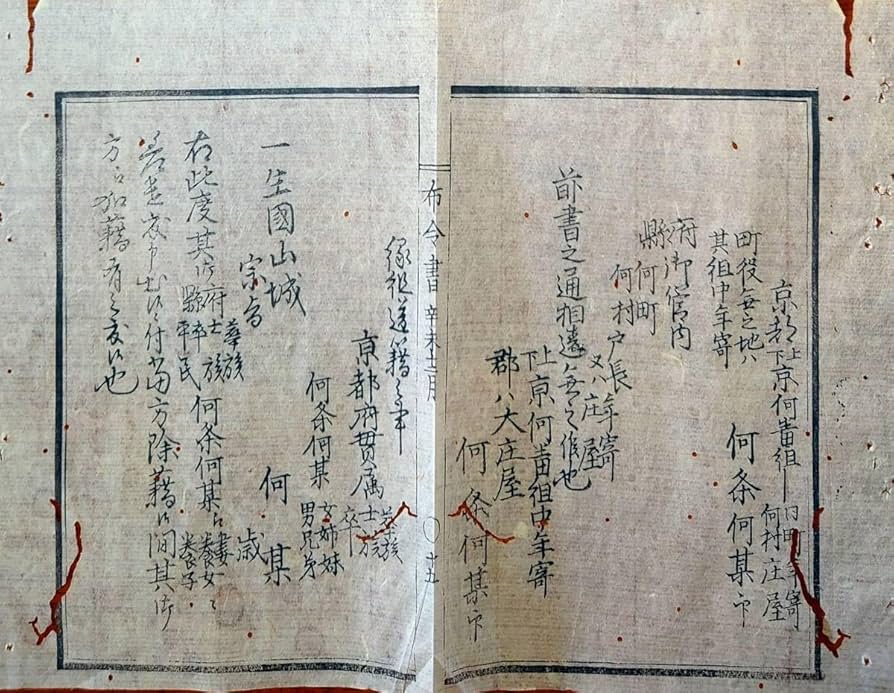 京都上下京何番組
町役無之地ハ
其組中年寄
何村庄屋
何条何某印
府
縣
御管内
何町
何村
戸長
又ハ庄屋
年寄
前書之通相違無之候也
上下京何番組中年寄
郡ハ大庄屋
何条何某印
布令書 辛未十二月
〇十五
縁組送籍之事
京都府貫属
華族
士族
卒
何条何某
女姉妹
男兄弟
一生國山城
何某
宗旨
歳
右此度其御
府
縣
華族
士族
卒族
平民
何条何某江
妻
養女
養子
付当方除籍候間其御
方江加籍有之度候也